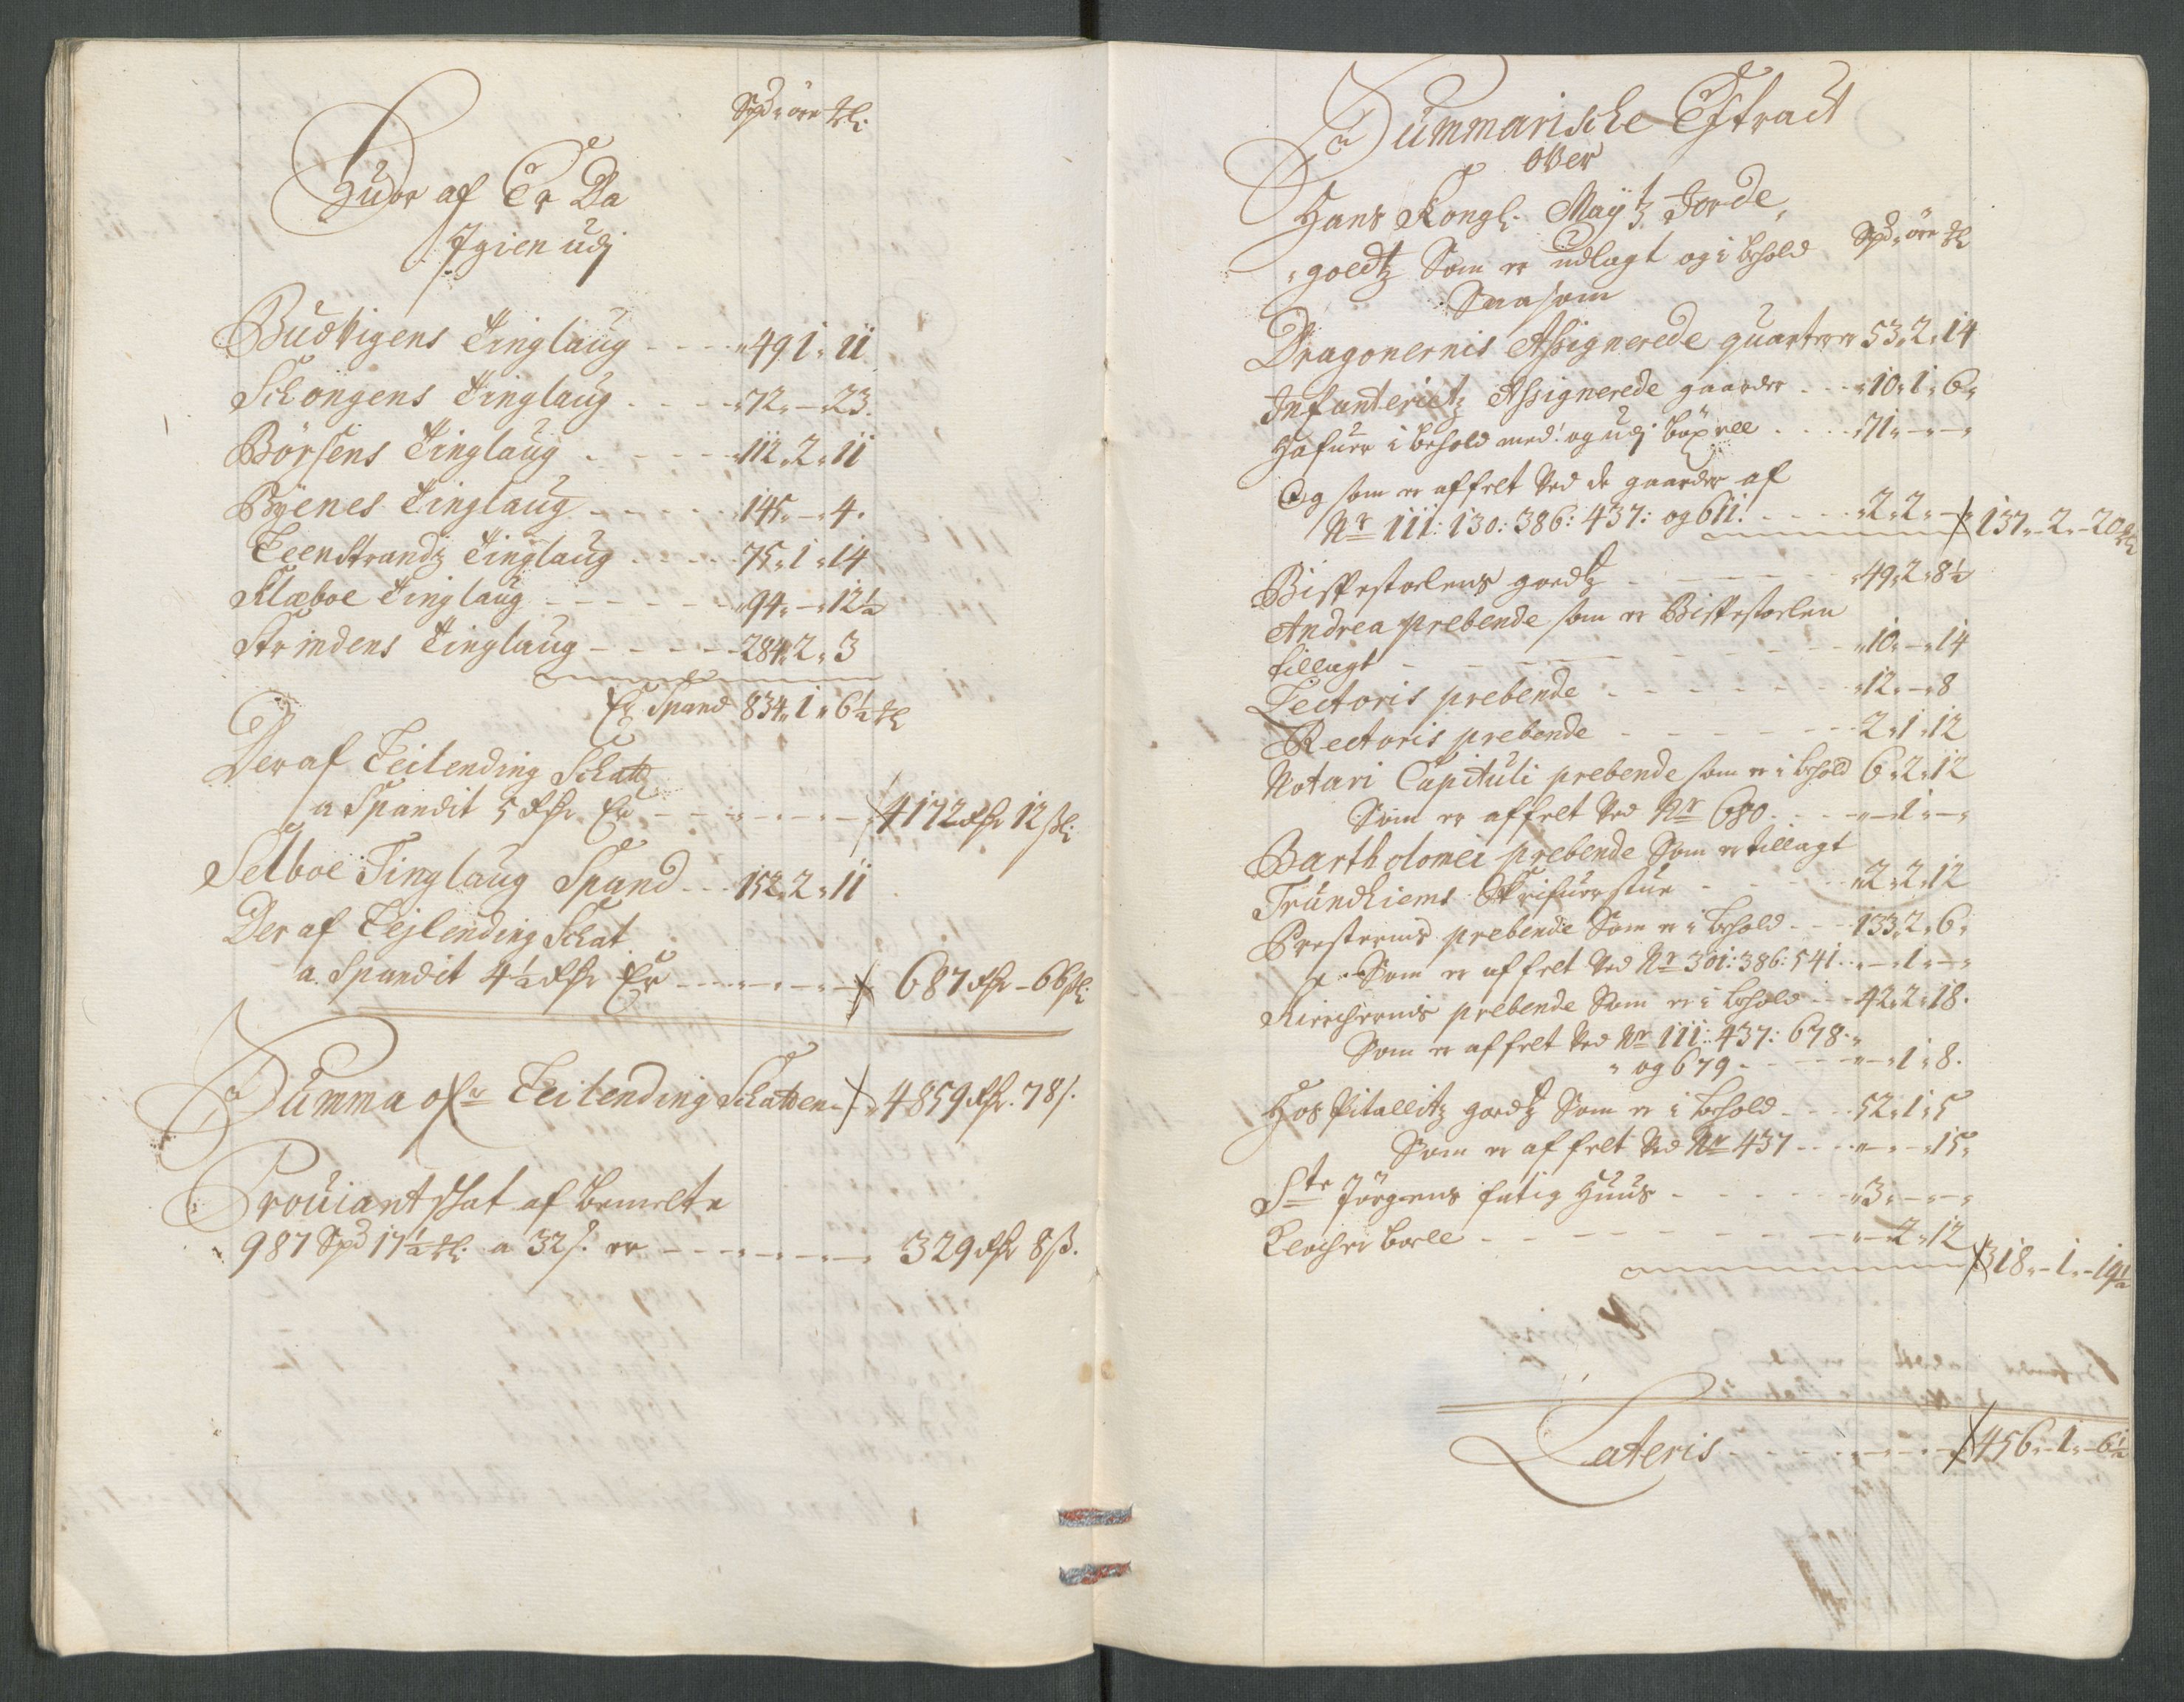 Spd: öre ℔:
Huor af Er Da
Igien udj
Budvigens Tinglaug - - - 49 1 11
Schongens Tinglaug - - - 72 - 23
Börsens Tinglaug - - - 112 2 11
Byenes Tinglaug - - - 145 - 4
Leenstrandz Tinglaug - - - 75 1 14
Klæboe Tinglaug - - - 94 - 12½
Strindens Tinglaug - - - 284 2 3
Er Spand 834 1 6½ ℔
Deraf Leilending Schatt
a Spandit 5 Rdr Er - - - 4172 Rdr 12 s:
Selboe Tinglaug Spand - - 152 2 11
Der af Lejlending Schat
a Spandit 4½ Rdr Er - - - 687 Rdr - 66 s:
Summa ofr Leilending Schatten - 4859 Rdr. 78 s.
Prouiant schat af bemelte
987 Spd 17½ ℔: a 32 s. er - - - 329 Rdr 8 s.
Summarische Extract
over
Hans Kongl: Maytz Jorde,
goedtz Som er udlagt og i behold Spd: öre ℔
Saasom
Dragonernis Assignerede quarterer 53 2 14
Infanterietz Assignerede gaarder - - - 10 1 6
Hafuer i behold med: og udj - - - 71 - -
Og som er affelt Ved de gaarder af
Nr 111: 130: 386: 437: og 611: - - - 2 2 - 137 - 2 - 20 ℔
Bispestoelens goedtz - - - 49 2 8½
Andrea prebende som er Bispestoelen
tillagt - - - 10 - 14
Lectoris prebende - - - 12 - 8
Rectoris prebende - - - 2 1 12
Notari Capituli prebende som er i behold 6 2 12
Som er affelt Ved Nr 680 - - - - 1 -
Bartholomei prebende Som er tillagt
Trundhiems Skrifuerstue - - - 2 2 12
Presternis prebende Som er i behold - - 133 2 6
Som er affelt Ved Nr 301: 386: 541 - - 1 -
Kirchernis prebende Som er i behold - - 42 2 18
Som er affelt Ved Nr 111: 437: 678:
og 679 - - - - 1 8
Hospitallitz goedtz Som er i behold - - 52 1 5
Som er affelt Ved Nr 437 - - - - - 15
Ste Jörgens fatig Huus - - - 3 - -
Klocher boell - - - - 2 12
318 - 1 - 19½
Lateris - - - 456 - 1 - 6½